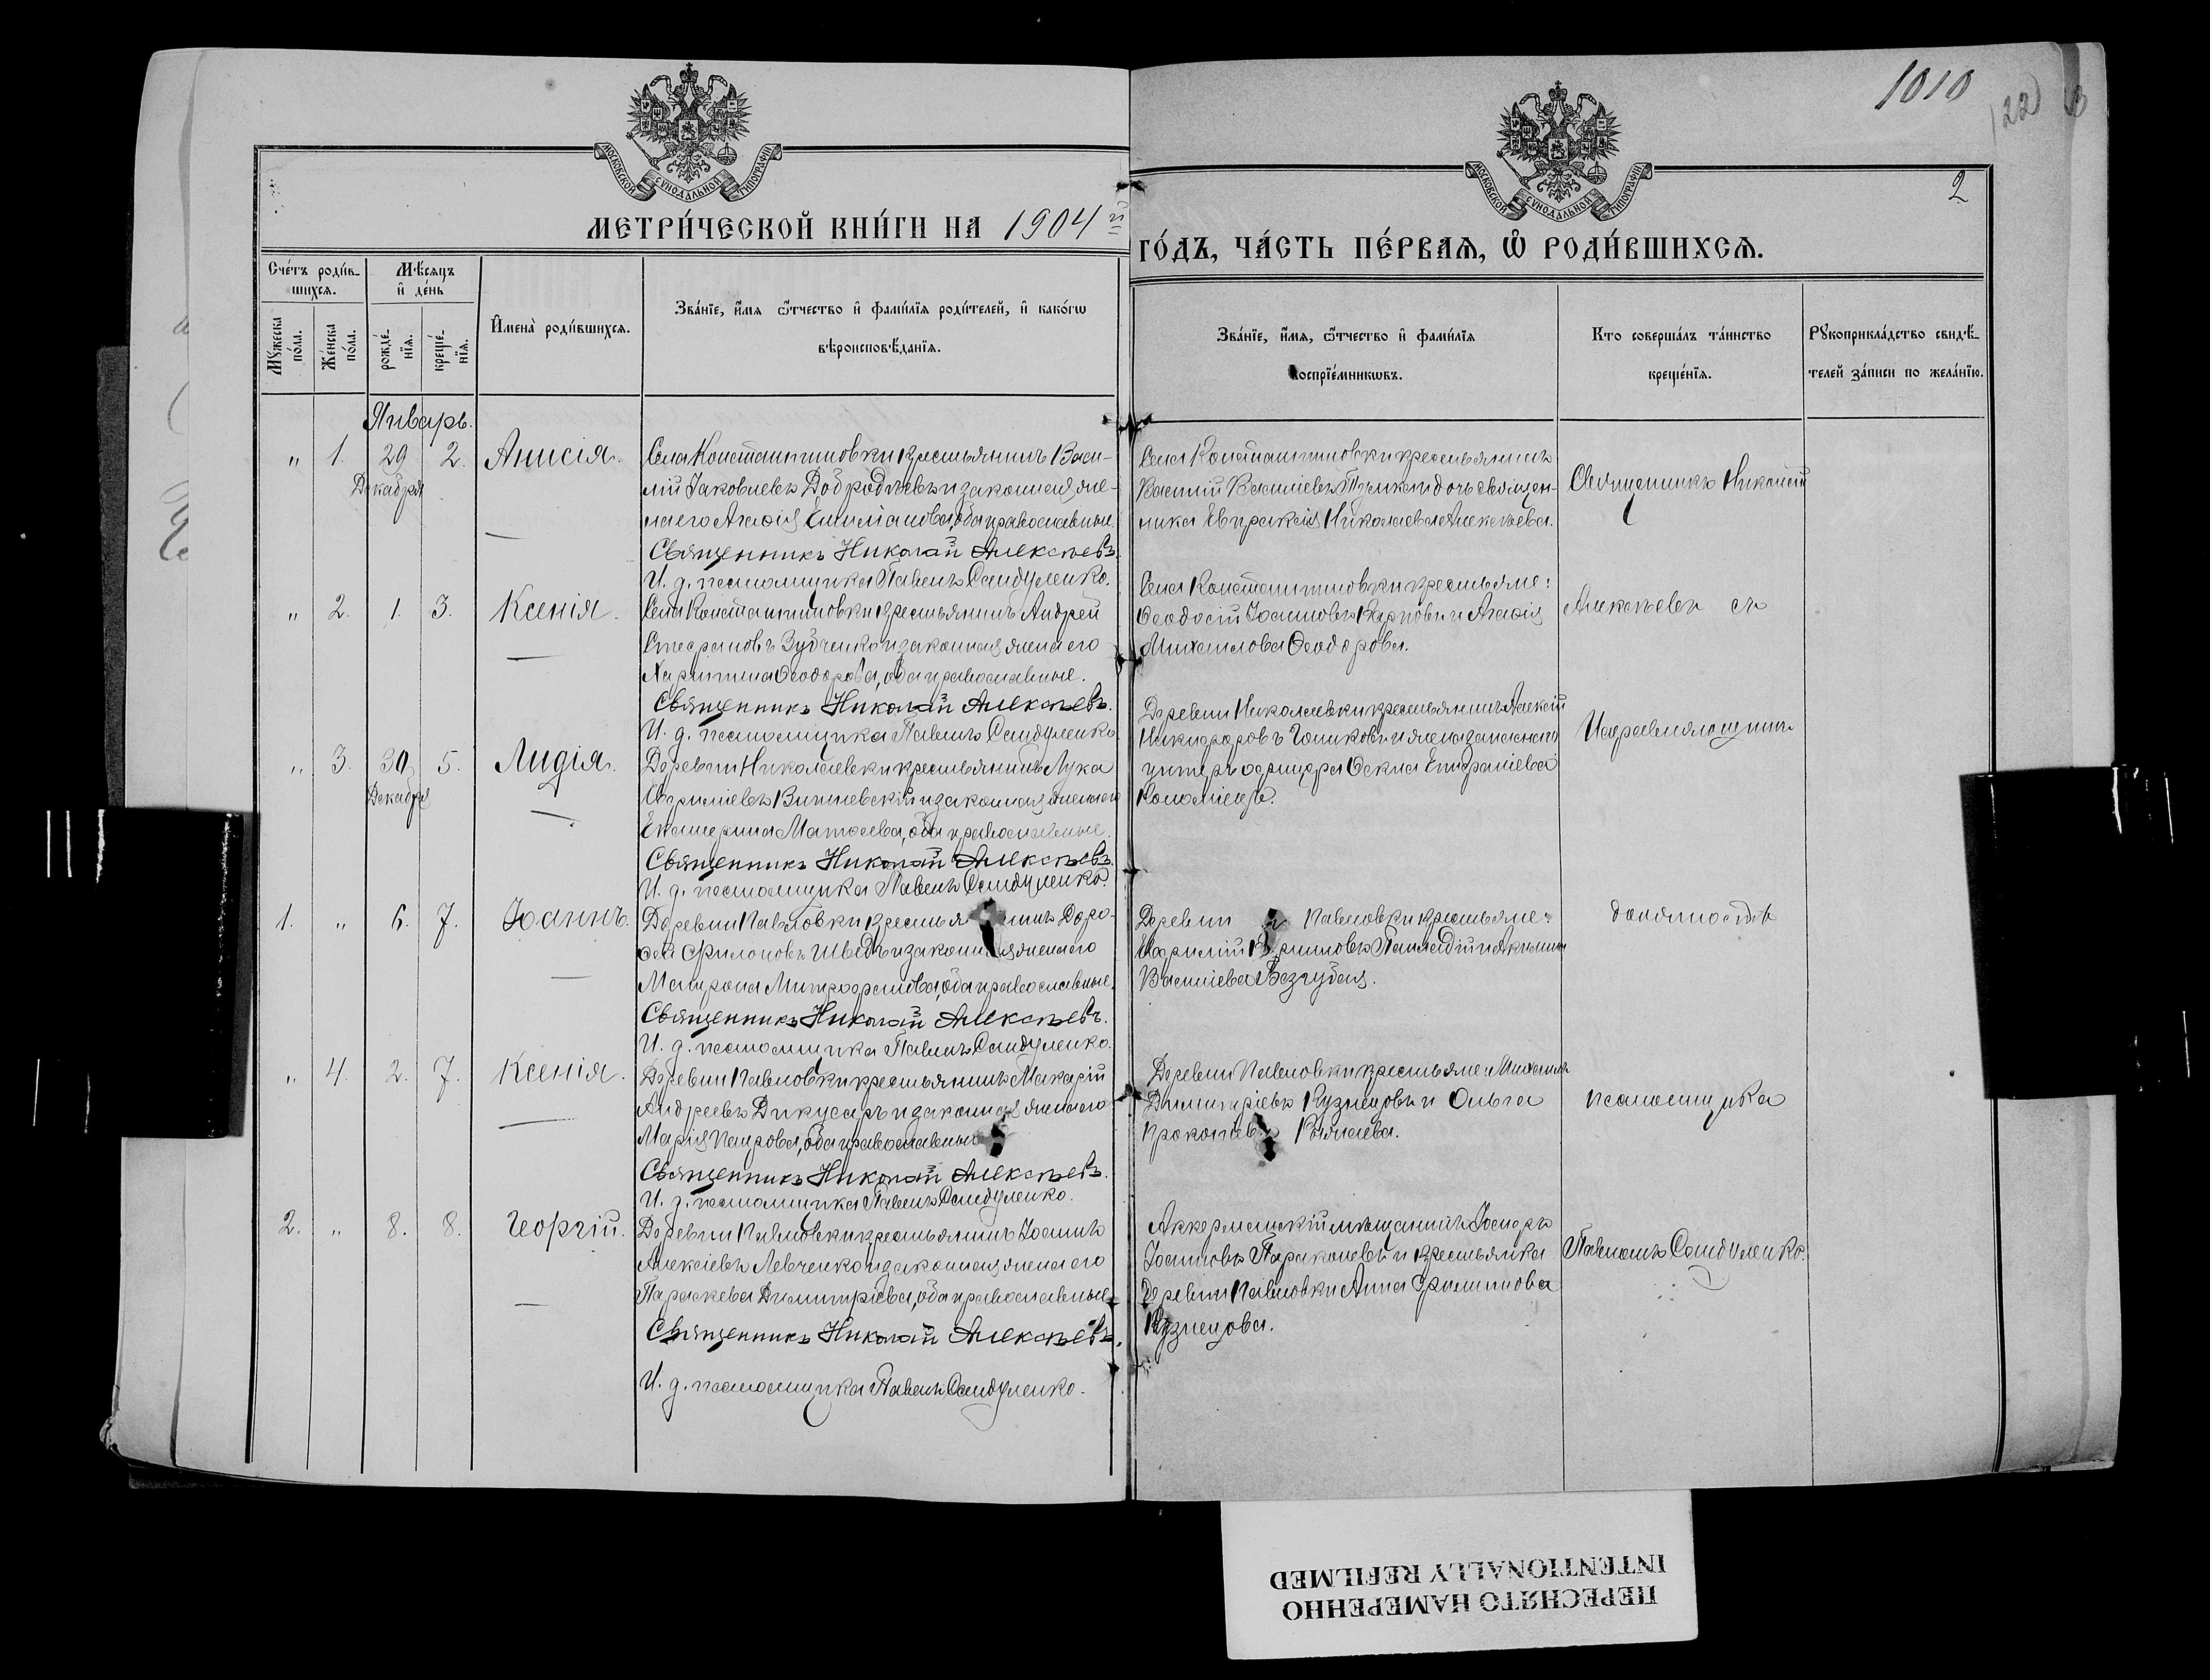 1010
122
2
МОСКОВСКОЙ СУНОДАЛЬНОЙ ТИПОГРАФІИ
МОСКОВСКОЙ СУНОДАЛЬНОЙ ТИПОГРАФІИ
МЕТРИ́ЧЕСКОЙ КНИ́ГИ НА 1904 й
ГО́ДЪ, ЧА́СТЬ ПЕ́РВАЯ, Ѡ҆ РОДИ́ВШИХСЯ.
Сче́тъ роди́в-
шихся.
Мѣ́сяцъ
и҆ де́нь
Мꙋ́жеска
по́ла.
Же́нска
по́ла.
рожде́-
нїя.
креще́-
нїя.
И҆мена̀ роди́вшихся.
Зва́нїе, и҆́мя ѻ҆́тчество и҆ фами́лїя роди́телей, и҆ како́гѡ
вѣроисповѣ́данїя.
Зва́нїе, и҆́мя, ѻ҆́тчество и҆ фами́лїя
воспрїе́мникѡвъ.
Кто соверша́лъ та́инство
креще́нїя.
Рꙋкоприкла́дство свидѣ́-
телей за́писи по жела́нїю.
Январь.
" 1. 29 2. Анисія.
Декабря
Села Константиновки крестьянинъ Васи-
лій Іаковлевъ Добродѣевъ и законная же-
на его Агаѳія оба православные.
Священникъ Николай Алексѣевъ.
И. д. псаломщика Павелъ Сандуленко.
Села Константиновки крестьянинъ
Василій Василіевъ и дочь священ-
ника Евпраксія Николаева Алексѣева.
Священникъ Николай
" 2. 1. 3. Ксенія.
Села Константиновки крестьянинъ Андрей
Стефановъ Зубченко и законная жена его
Харитина Ѳеодорова, оба православные.
Священникъ Николай Алексѣевъ.
И. д. псаломщика Павелъ Сандуленко.
Села Константиновки крестьяне:
Ѳеодосій Іоанновъ Карповъ и Агаѳія
Михаилова Ѳеодорова.
Алексѣевъ съ
" 3. 30 5. Лидія.
Декабря
Деревни Николаевки крестьянинъ Лука
Евфиміевъ Вишневскій и законная жена его
Екатерина Матѳеева, оба православные.
Священникъ Николай Алексѣевъ.
И. д. псаломщика Павелъ Сандуленко.
Деревни Николаевки крестьянинъ Алексій
Никифоровъ и жена запаснаго
унтеръ офицера Ѳекла Епифаніева
Коломіецъ.
Исправляющимъ
1. " 6. 7. Іоаннъ.
Деревни Павловки крестьянинъ Доро-
ѳей Филоновъ Шведъ и законная жена его
Матрона Митрофанова, оба православные.
Священникъ Николай Алексѣевъ.
И. д. псаломщика Павелъ Сандуленко.
Деревни Павловки крестьяне:
Евфимій Палладій и Акилина
Василіева Безгубая.
должность
" 4. 2. 7. Ксенія.
Деревни Павловки крестьянинъ Макарій
Андреевъ Дикусаръ и законная жена его
Марія оба православные
Священникъ Николай Алексѣевъ.
И. д. псаломщика Павелъ Сандуленко.
Деревни Павловки крестьяне: Михаилъ
Димитріевъ Кузнецовъ и Ольга
псаломщика
2. " 8. 8. Георгій.
Деревни Павловки крестьянинъ Іоаннъ
Алексіевъ Левченко и законная жена его
Параскева Димитріева, оба православные.
Священникъ Николай Алексѣевъ.
И. д. псаломщика Павелъ Сандуленко.
Аккерманскій мѣщанинъ Іосифъ
Іоанновъ и крестьянка
деревни Павловки Анна Филиппова
Кузнецова.
Павломъ Сандуленко.
ПЕРЕСНЯТО НАМЕРЕННО
INTENTIONALLY REFILMED